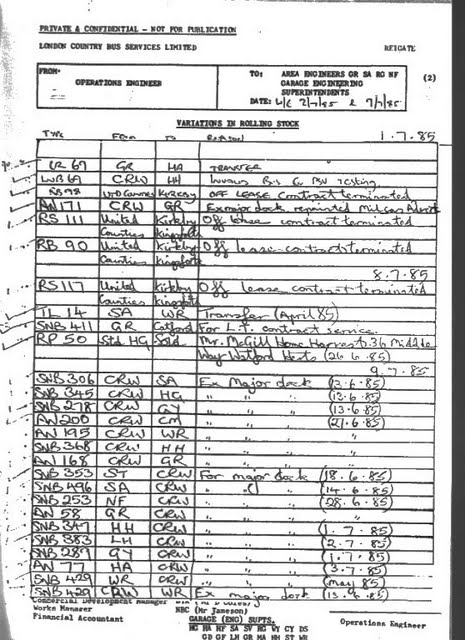 PRIVATE & CONFIDENTIAL - NOT FOR PUBLICATION
LONDON COUNTRY BUS SERVICES LIMITED REIGATE
FROM- OPERATIONS ENGINEER TO: AREA ENGINEERS GR SA RG NF (2)
GARAGE ENGINEERING
SUPERINTENDENTS
DATE: W/C 2/7/85 & 7/7/85
VARIATIONS IN ROLLING STOCK
TYPE FROM TO REASON 1.7.85
LR 69 GR HA TRANSFER
LWB 69 CRW HH Testing
RB 98 UTD Counties Kirkby OFF LEASE Contract terminated
AN 171 CRW GR Ex major dock repainted
RS 111 United Kirkby Off lease contract terminated
Counties Kingsforth
RB 90 United Kirkby Off lease contract terminated
Counties Kingsforth
8.7.85
RS 117 United Kirkby Off lease contract terminated
Counties Kingsforth
TL 14 SA WR Transfer (April 85)
SNB 411 GR Catford For L.T. contract service.
RP 50 Std HG Sold Mr. McGill Home Harvests 36 Middle
Way Watford Herts (26.6.85)
9.7.85
SNB 306 CRW SA Ex Major dock (13.6.85)
SNB 345 CRW HG " " " (13.6.85)
SNB 278 CRW GY " " " (13.6.85)
AN 205 CRW CM " " " (21.6.85)
AN 195 CRW WR " " "
SNB 368 CRW HH " " "
AN 168 CRW GR " " "
SNB 353 ST CRW For major dock (18.6.85)
SNB 496 SA CRW " " " (14.6.85)
SNB 253 NF CRW " " " (28.6.85)
AN 58 GR CRW " " "
SNB 347 HH CRW " " " (1.7.85)
SNB 383 LH CRW " " " (2.7.85)
SNB 289 GY CRW " " " (1.7.85)
AN 77 HA CRW " " " (3.7.85)
SNB 429 WR CRW " " " (May 85)
SNB 429 CRW WR Ex major dock (13.6.85)
Commercial Development Manager
Works Manager NBC (Mr Jameson)
Financial Accountant GARAGE (ENG) SUPTS. Operations Engineer
HG HA NF SA SV RG WY CY DS
GD GF LH GR MA HH ST WR